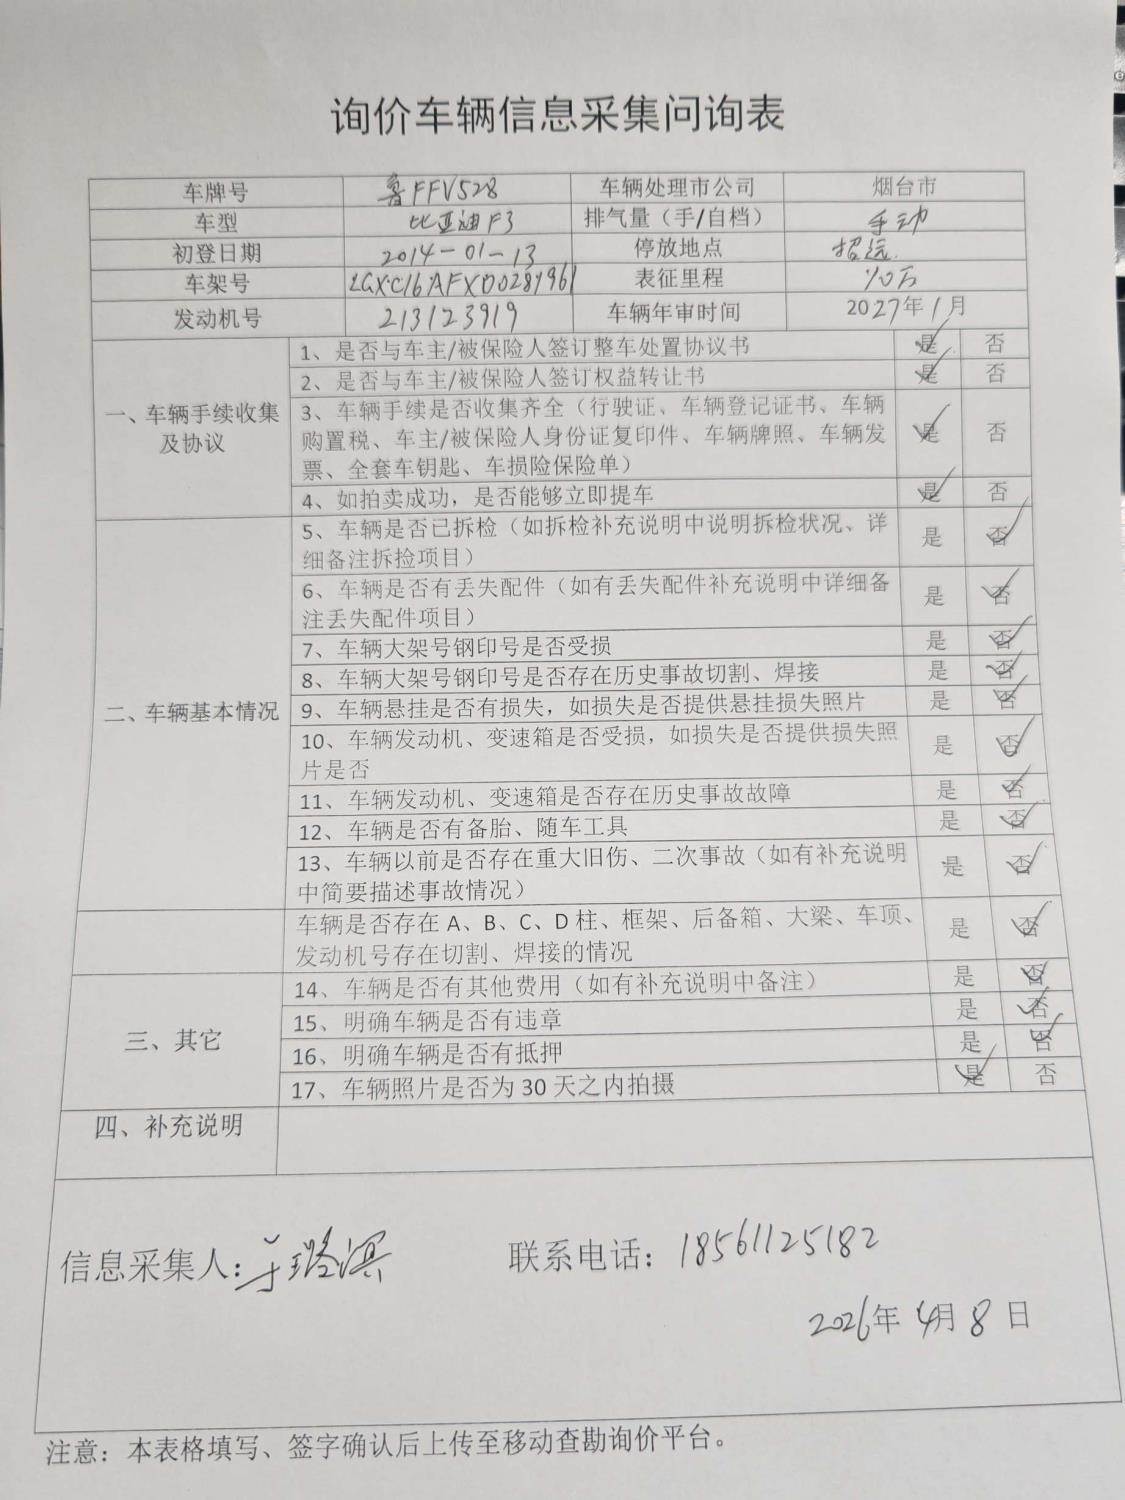 询价车辆信息采集问询表
车牌号 鲁FFV528 车辆处理市公司 烟台市
车型 比亚迪F3 排气量（手/自档） 手动
初登日期 2014-01-13 停放地点 招远
车架号 LGXC16AFXD0289961 表征里程 10万
发动机号 213123919 车辆年审时间 2027年1月
一、车辆手续收集及协议
1、是否与车主/被保险人签订整车处置协议书 是 否
2、是否与车主/被保险人签订权益转让书 是 否
3、车辆手续是否收集齐全（行驶证、车辆登记证书、车辆
购置税、车主/被保险人身份证复印件、车辆牌照、车辆发 是 否
票、全套车钥匙、车损险保险单）
4、如拍卖成功，是否能够立即提车 是 否
二、车辆基本情况
5、车辆是否已拆检（如拆检补充说明中说明拆检状况、详 是 否
细备注拆捡项目）
6、车辆是否有丢失配件（如有丢失配件补充说明中详细备 是 否
注丢失配件项目）
7、车辆大架号钢印号是否受损 是 否
8、车辆大架号钢印号是否存在历史事故切割、焊接 是 否
9、车辆悬挂是否有损失，如损失是否提供悬挂损失照片 是 否
10、车辆发动机、变速箱是否受损，如损失是否提供损失照 是 否
片是否
11、车辆发动机、变速箱是否存在历史事故故障 是 否
12、车辆是否有备胎、随车工具 是 否
13、车辆以前是否存在重大旧伤、二次事故（如有补充说明 是 否
中简要描述事故情况）
车辆是否存在 A、B、C、D 柱、框架、后备箱、大梁、车顶、 是 否
发动机号存在切割、焊接的情况
三、其它
14、车辆是否有其他费用（如有补充说明中备注） 是 否
15、明确车辆是否有违章 是 否
16、明确车辆是否有抵押 是 否
17、车辆照片是否为 30 天之内拍摄 是 否
四、补充说明
信息采集人： 联系电话：18561125182
2026年 4月 8 日
注意：本表格填写、签字确认后上传至移动查勘询价平台。